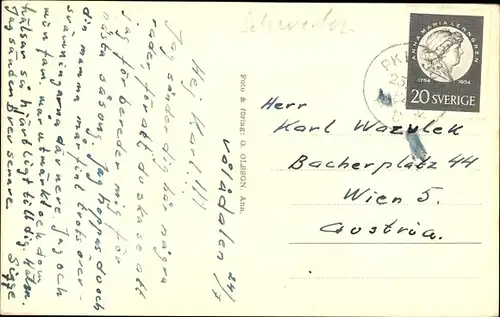 Schweden
ANNA MARIA LENNGREN
1754 1954
20 SVERIGE
PK
Vålådalen 24/7
Hej Karl!!!
Jag sänder dig här några
rader för att du skase att
jag förbereder mig för
nästa säsong. Jag hoppas du och
din mamma mår fint trots över-
svämningarna där nere. Jag och
min fam. mår utmärkt och dom
hälsar så hjärtligt till dig. Hälsn.
Jag sänder Brev senare Sigge
Foto & förlag: O. OLSSON, Ånn.
Herr
Karl Wazulek
Bacherplatz 44
Wien 5.
Austria.